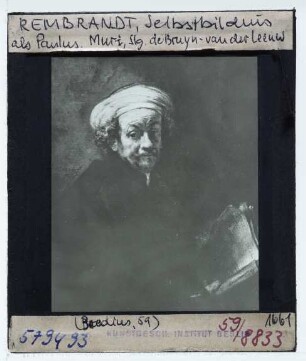 REMBRANDT, Selbstbildnis
als Paulus. Muri, Slg. de Bruyn-van der Leeuw
(Bredius, 59)
59/
1661
579493
KUNSTGESCH. INSTITUT BERLIN
8833